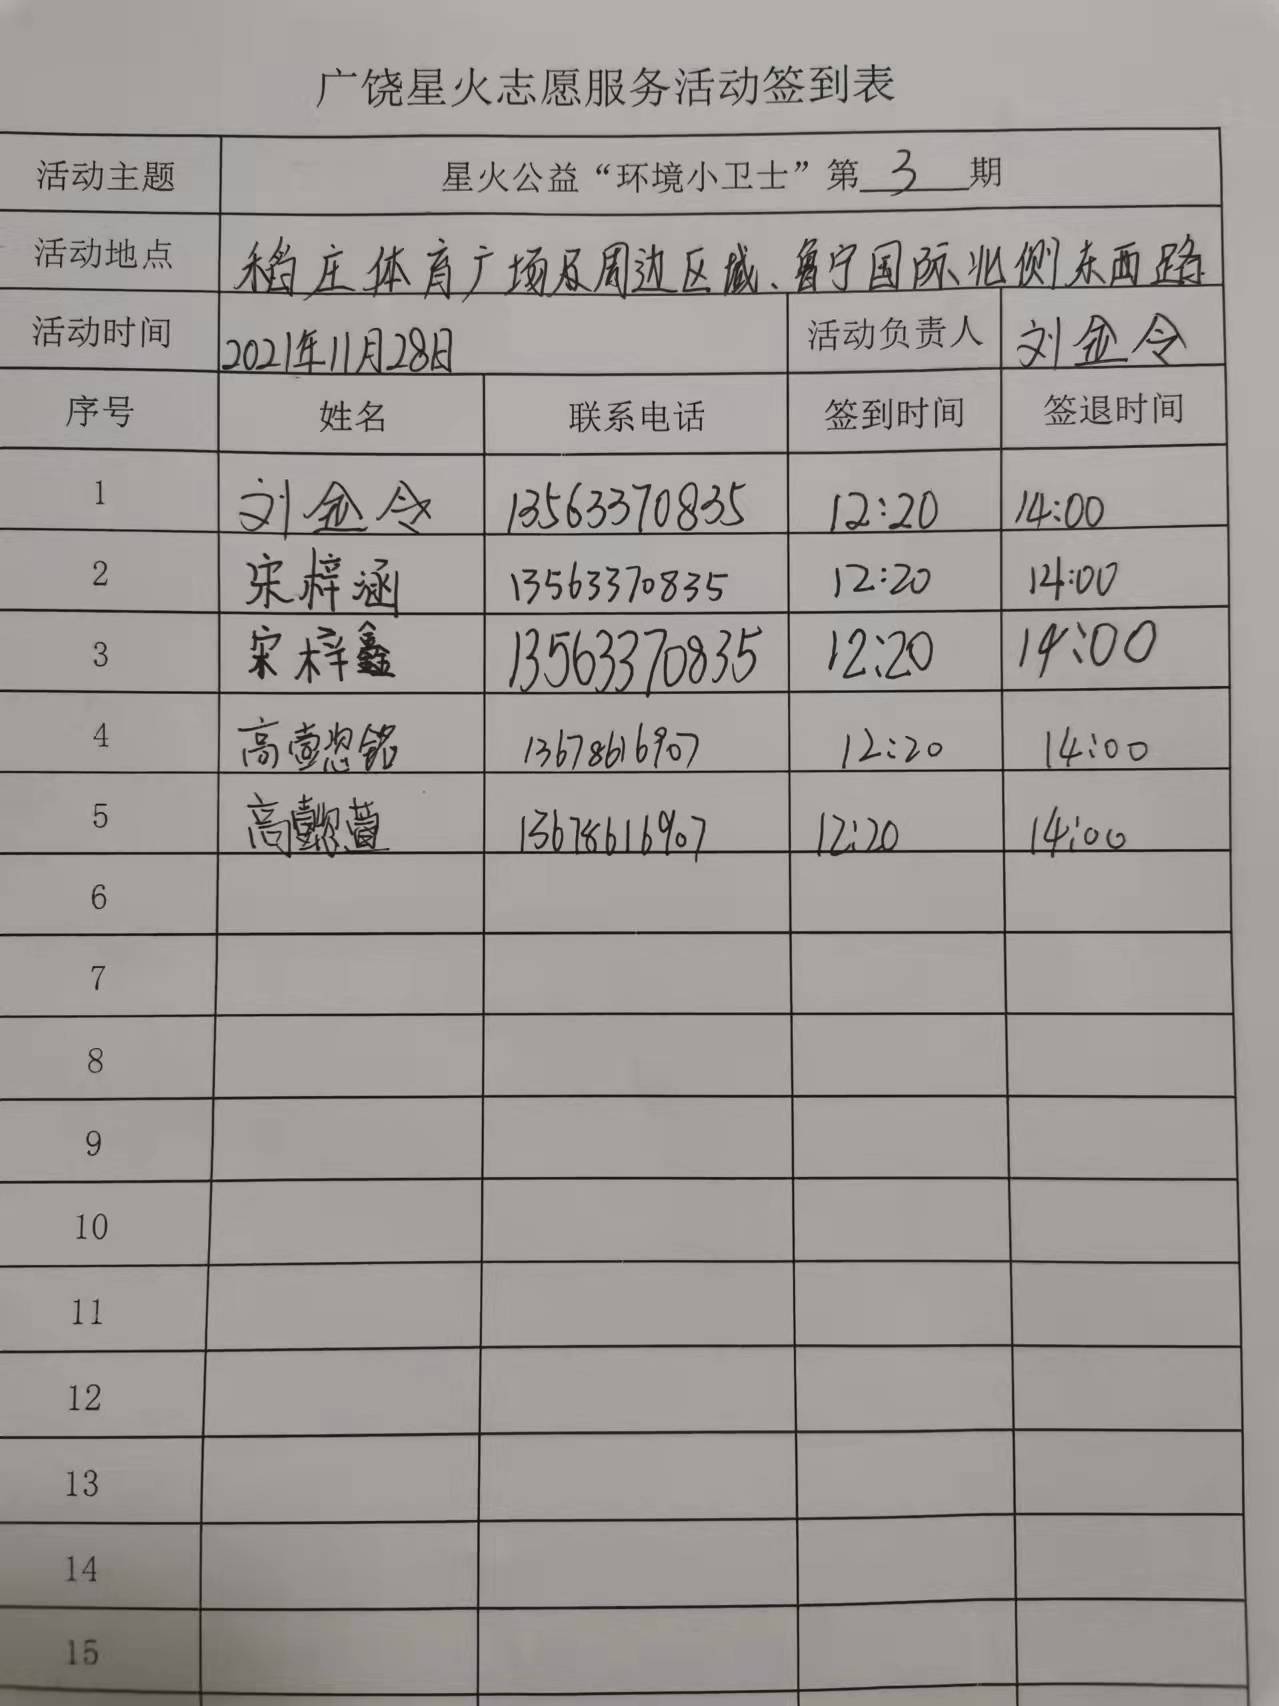 广饶星火志愿服务活动签到表
活动主题 星火公益“环境小卫士”第 3 期
活动地点 稻庄体育广场及周边区域、鲁宁国际北侧东西路
活动时间 2021年11月28日 活动负责人 刘金令
序号 姓名 联系电话 签到时间 签退时间
1 刘金令 13563370835 12:20 14:00
2 宋梓涵 13563370835 12:20 14:00
3 宋梓鑫 13563370835 12:20 14:00
4 高壹铭 13678616907 12:20 14:00
5 高懿萱 13678616907 12:20 14:00
6
7
8
9
10
11
12
13
14
15